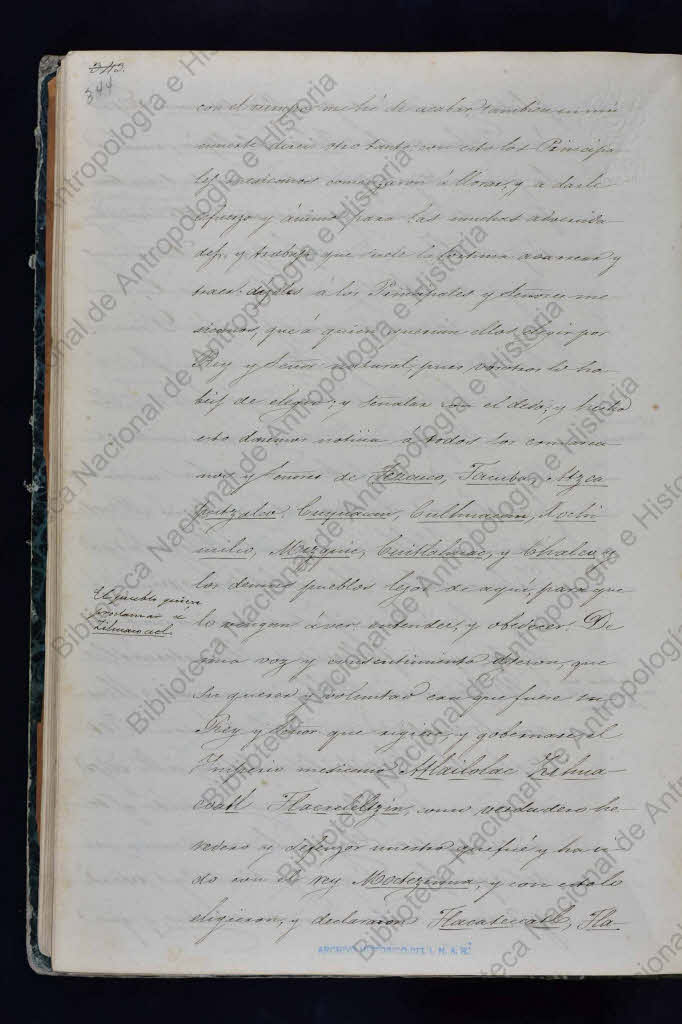 343.
344
con el tiempo me hé de acabar, tambien en mi
muerte direi otro tanto; con esto los Principa
les mexicanos comenzaron á llorar, y a darle
esfuerzo y ánimo para las muchas adversida
des, y trabajos que suele la fortuna acarrear y
traer: díjoles a los Principales y Señores me
xicanos, que á quien querian ellos elegir por
Rey y Señor natural, pues vosotros lo ha
beis de elegir, y señalar con el dedo, y hecho
esto daremos noticia á todos los comarca
nos y Señores de Tezcuco, Tacuba, Atzca
putzalco, Cuyuacan, Culhuacan, Xochi
milco, Mizquic, Cuitlahuac, y Chalco y
los demas pueblos lejos de aqui, para que
lo vengan á ver, entender, y obedecer. De
una voz y consentimiento dijeron, que
su querer y voluntad era que fuese su
Rey y Señor que rigiese, y gobernase el
Imperio mexicano Atlailotlac Zihua
coatl Tlacaeleltzin, como verdadero he
redero y defensor nuestro que fué y ha si
do con el rey Moctezuma, y con esto lo
eligieron, y declararon Tlacateccatl, Tla
El pueblo quiere
proclamar a
Zihuacoatl.
ARCHIVO HISTORICO DEL I. N. A. H.
Biblioteca Nacional de Antropología e Historia